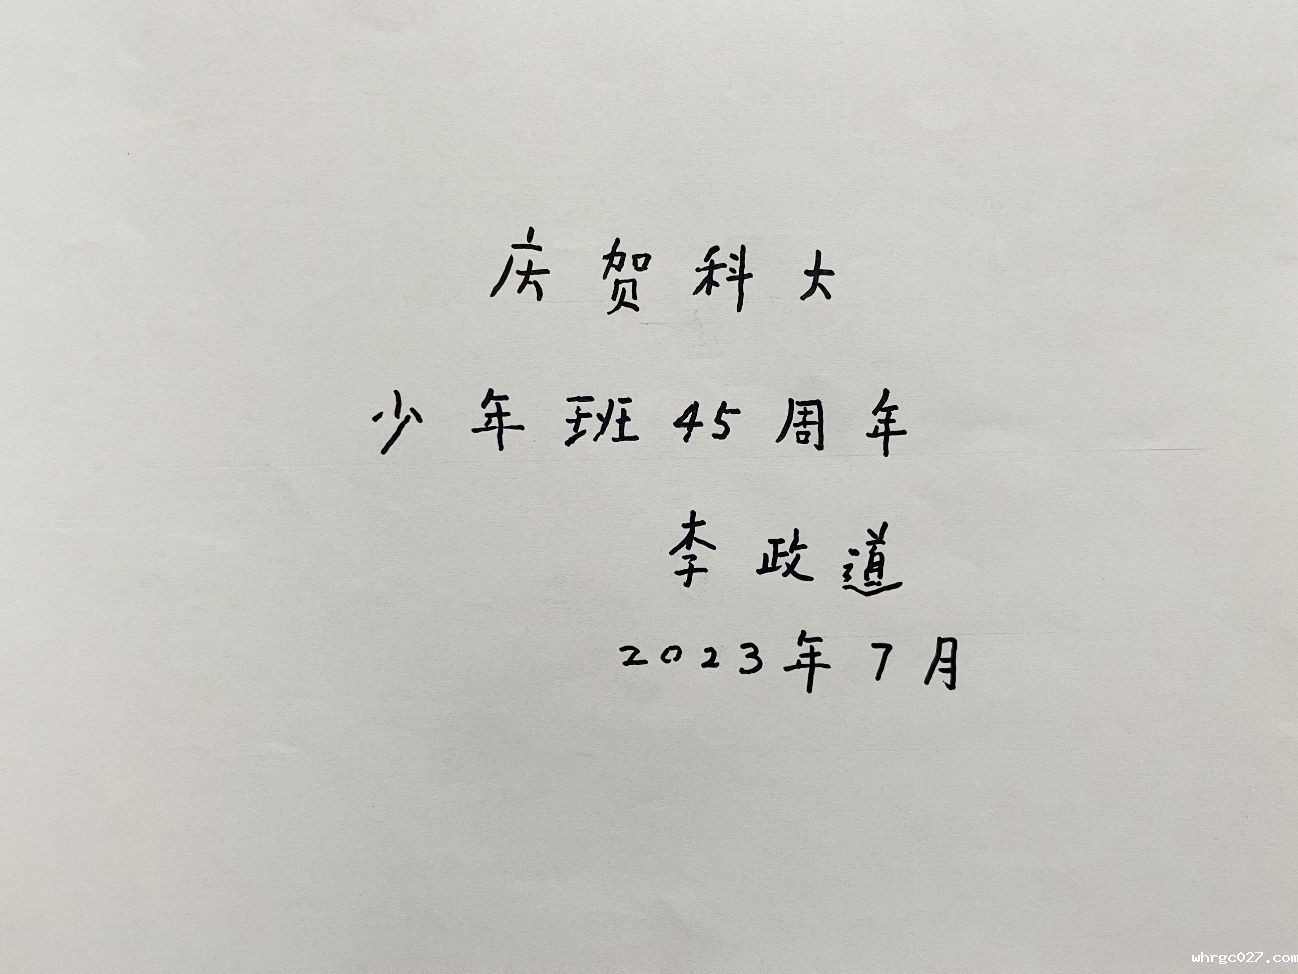 庆贺科大
少年班45周年
李政道
2023年7月
whrgc027.com